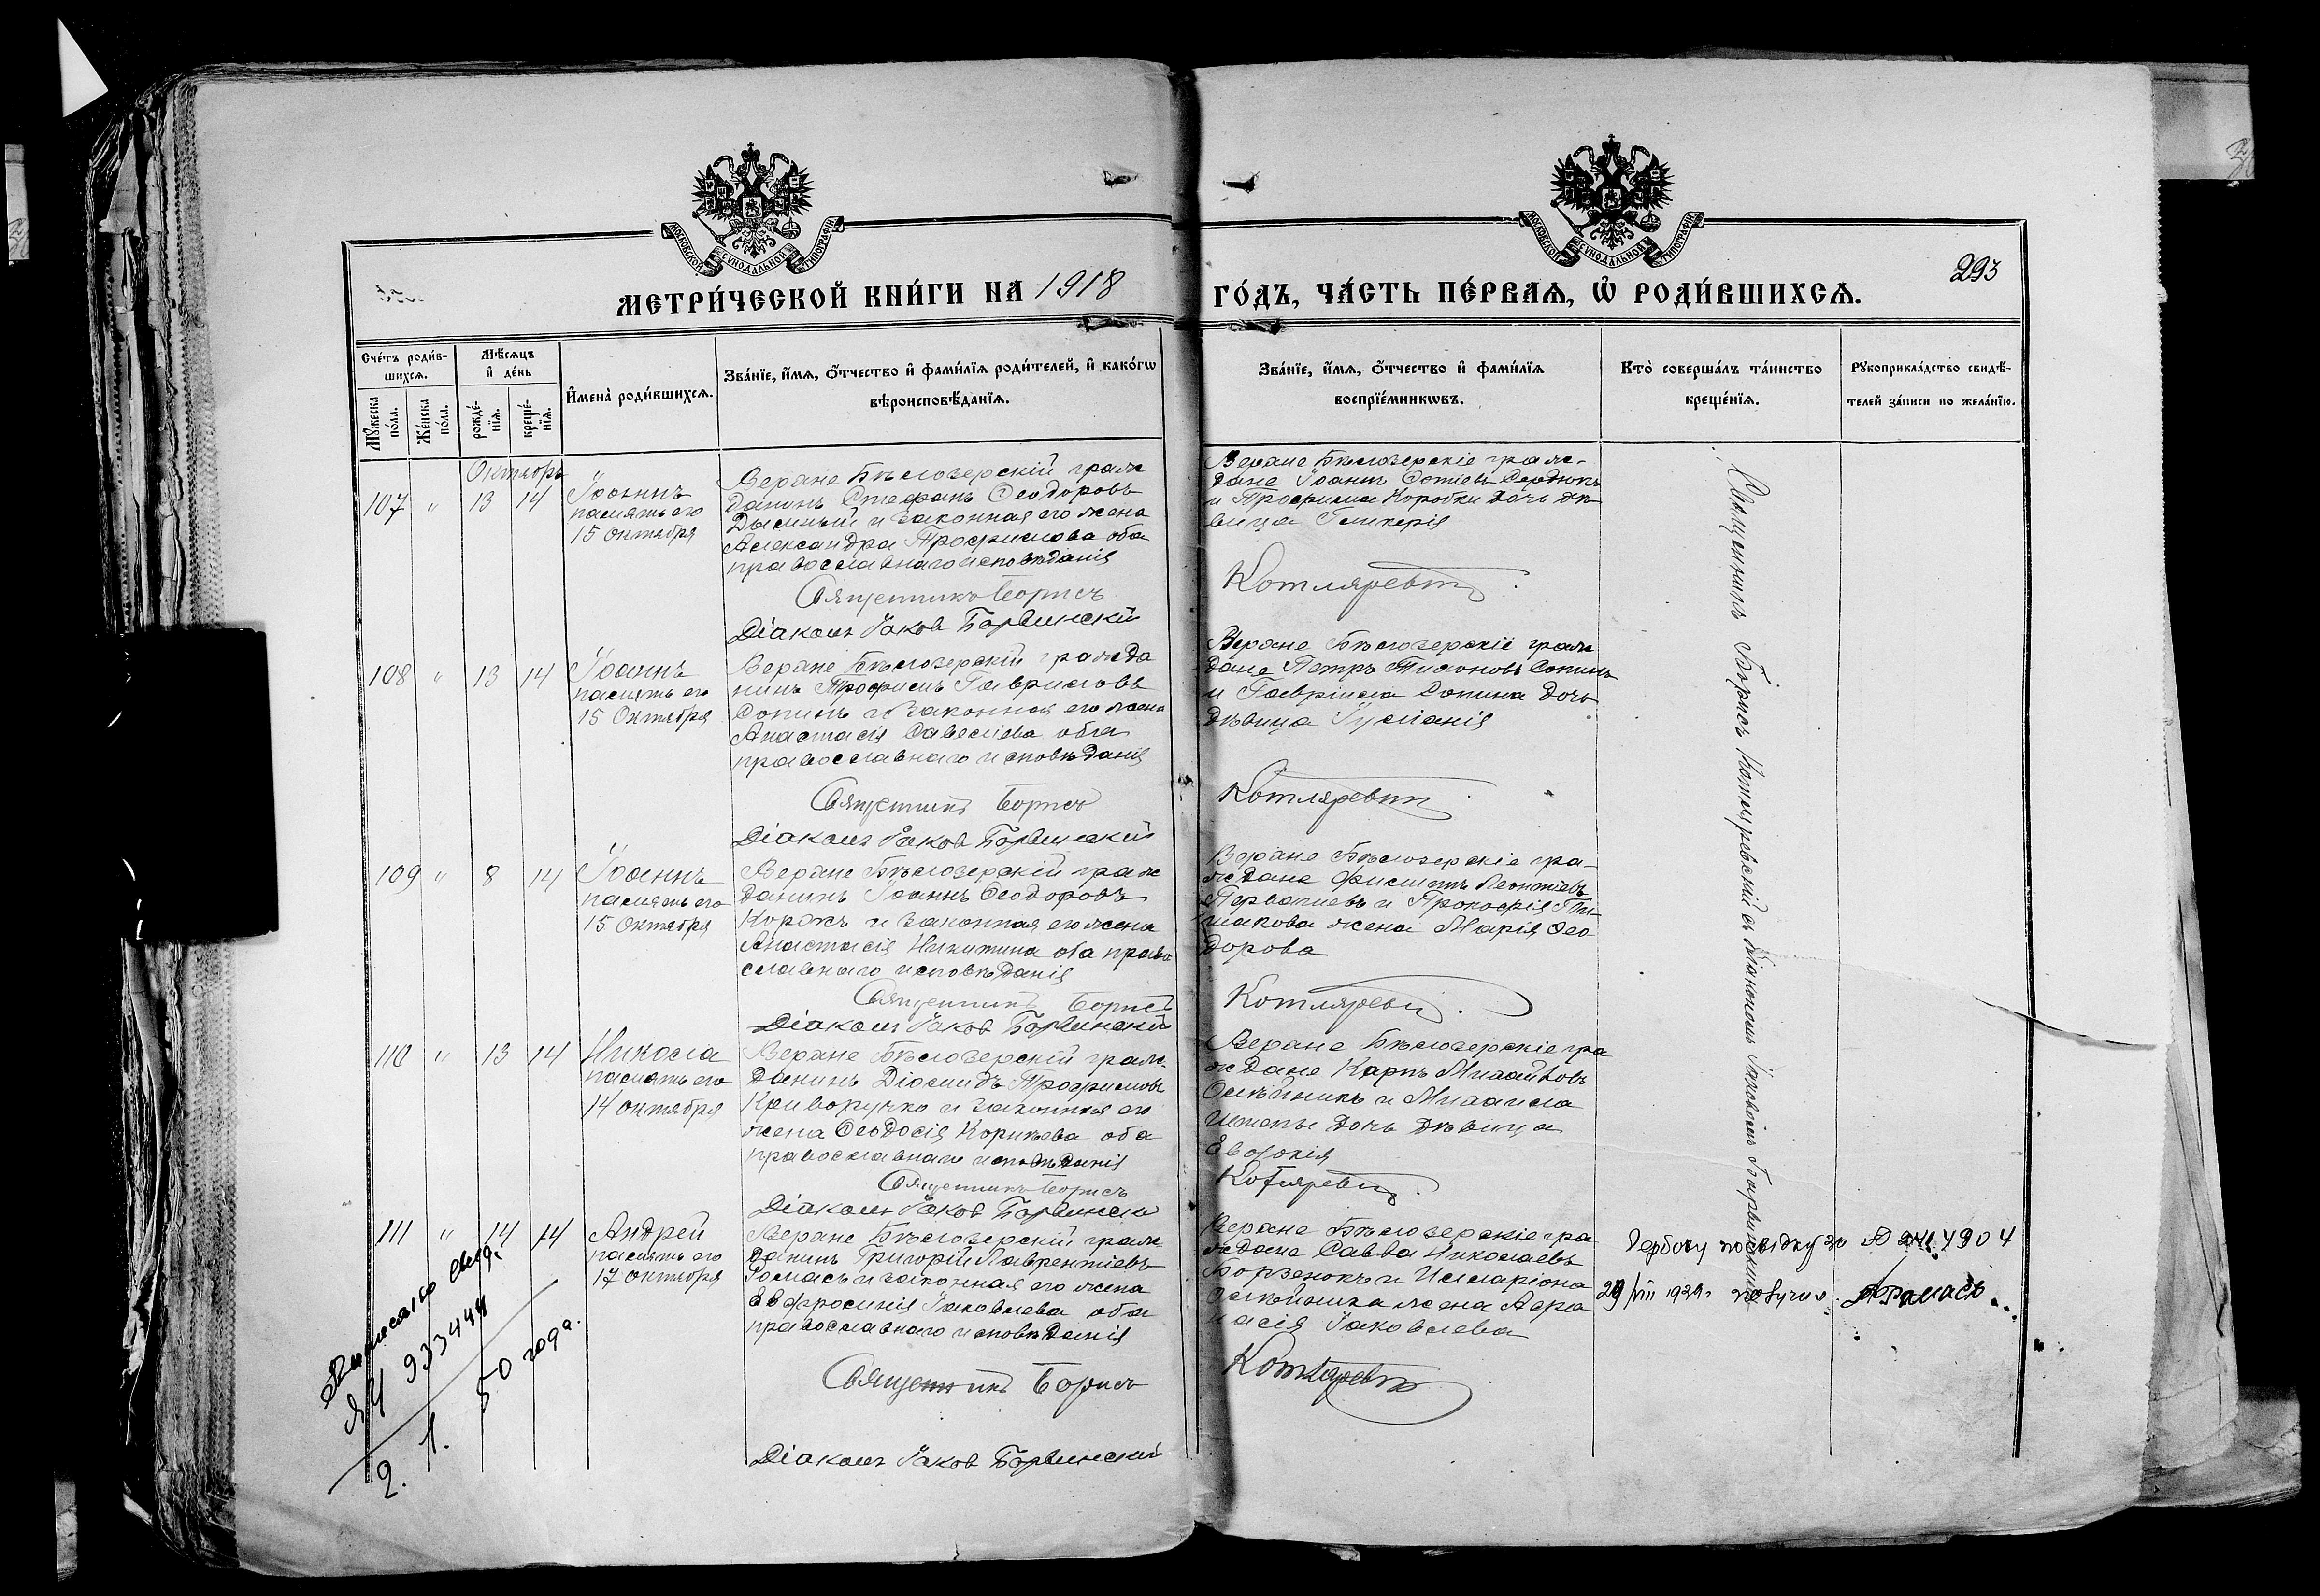 МОСКОВСКОЙ СѴНОДАЛЬНОЙ ТИПОГРАФІИ
МОСКОВСКОЙ СѴНОДАЛЬНОЙ ТИПОГРАФІИ
МЕТРИ́ЧЕСКОЙ КНИ́ГИ НА 1918
ГО́ДЪ, ЧА́СТЬ ПЕ́РВАѦ, Ѡ҆ РОДИ́ВШИХСѦ.
293
Сче́тъ роди́в-
шихсѧ.
Мѣ́сѧцъ
и҆ де́нь
Мꙋ́жеска по́ла.
Же́нска по́ла.
рожде́-
нїѧ.
креще́-
нїѧ.
И҆мена̀ роди́вшихсѧ.
Зва́нїе, и҆́мѧ, ѻ҆́тчество и҆ фами́лїѧ роди́телей, и҆ како́гѡ
вѣроисповѣ́данїѧ.
Зва́нїе, и҆́мѧ, ѻ҆́тчество и҆ фами́лїѧ
воспрїе́мникѡвъ.
Кто̀ соверша́лъ та́инство
креще́нїѧ.
Рꙋкоприкла́дство свидѣ́-
телей за́писи по жела́нїю.
Октябрь
107 " 13 14
Іоаннъ
память его
15 Октября
Веряне Бѣлозерскій граж
данинъ Стефанъ Ѳеодоровъ
и законная его жена
Александра Трофимова оба
православнаго исповѣданія
Священникъ Борисъ
Діаконъ Іаков Барвинскій
Веряне Бѣлозерскіе граж-
дане Іоаннъ Сердюкъ
и Трофима Коробки дочь дѣ
вица Гликерія
Котляревскій
108 " 13 14
Іоаннъ
память его
15 Октября
Веряне Бѣлозерскій гражда
нинъ Трофимъ Гавриловъ
Сопинъ и законная его жена
Анастасія Савеліева оба
православнаго исповѣданія
Священникъ Борисъ
Діаконъ Іаков Барвинскій
Веряне Бѣлозерскіе граж
дане Петръ Тихоновъ Сопинъ
и Гавріила Сопина дочь
дѣвица Іуліанія
Котляревскій
109 " 8 14
Іоаннъ
память его
15 Октября
Веряне Бѣлозерскій граж
данинъ Іоаннъ Ѳеодоровъ
Коржъ и законная его жена
Анастасія Никитина оба право
славнаго исповѣданія
Священникъ Борисъ
Діаконъ Іаков Барвинскій
Веряне Бѣлозерскіе гра-
ждане Филиппъ Леонтіевъ
и Прокофія
жена Марія Ѳео
дорова
Котляревскій
110 " 13 14
Никола
память его
14 октября
Веряне Бѣлозерскій граж-
данинъ Діомидъ Трофимовъ
Криворучко и законная его
жена Ѳеодосія Корнѣева оба
православнаго исповѣданія
Священникъ Борисъ
Діаконъ Іаков Барвинскій
Веряне Бѣлозерскіе гра
ждане Карпъ Михайловъ
Олѣйникъ и Михаила
дочь дѣвица
Евдокія
Котляревскій
111 " 14 14
Андрей
память его
17 октября
Веряне Бѣлозерскій граж-
данинъ Григорій Лаврентіевъ
Ромасъ и законная его жена
Евфросинія Іаковлева оба
православнаго исповѣданія
Священникъ Борисъ
Діаконъ Іаков Барвинскій
Веряне Бѣлозерскіе гра-
ждане Савва Николаевъ
Борзенокъ и Иларіона
Олѣйника жена
Іаковлева
Котляревскій
Священникъ Борисъ Котляревскій съ Діакономъ Іаковомъ Барвинскимъ
Гербову посвідку за
4904
29/VIII 1939. получил
Ромась
Выписано свид.
ЯЧ 933444
2. 1. 50 года.